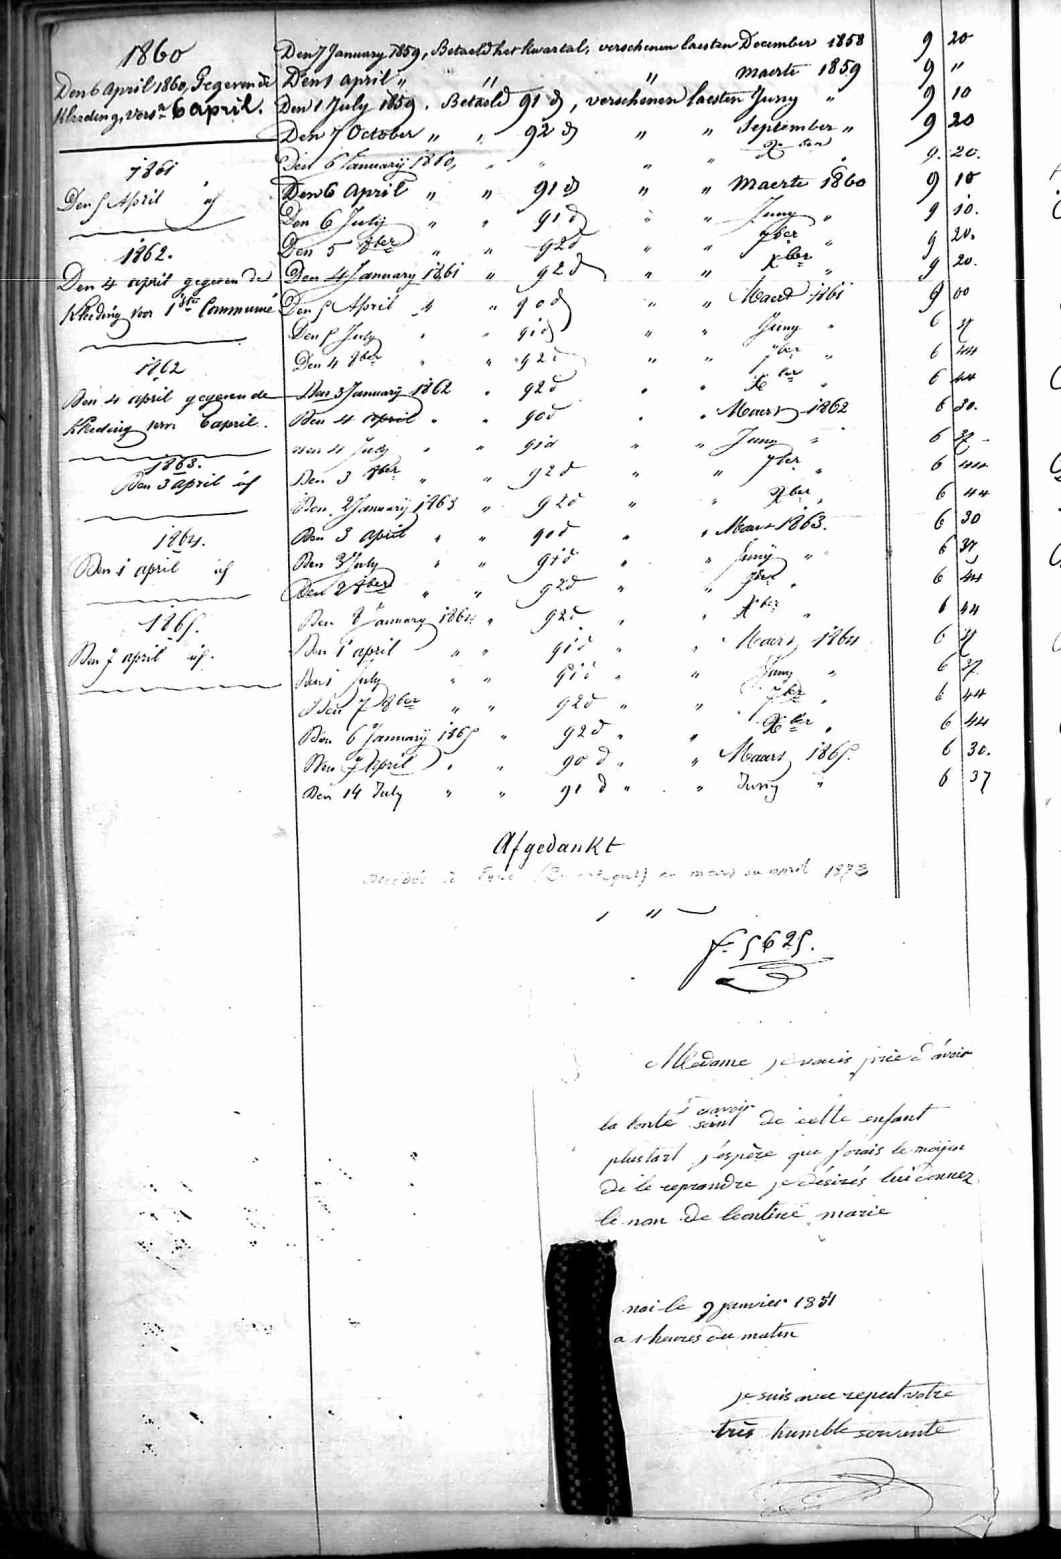 1860
Den 6 April 1860, Gegeven de
Kleeding, voor 6 april.
1861
Den 5 April id
1862.
Den 4 april gegeven de
Kleeding voor 1ste Commumie
1862
Den 4 april gegeven de
Kleeding voor 6 april.
1863.
Den 3 april id
1864.
Den 1 april id
1865.
Den 7 april id.
Den 7 January 1859, Betaeld het kwartal, verschenen laesten December 1858 9 20
Den 1 april " " " Maerte 1859 9 "
Den 1 July 1859. Betaeld 91 d, verschenen laesten Juny " 9 10
Den 7 October " " 92 d " " September " 9 20
Den 6 January 1860, " " " " Xber " 9. 20.
Den 6 April " " 91 d " " Maerte 1860 9 10
Den 6 July " " 91 d " " Juny " 9 10.
Den 5 8ber " " 92 d " " 7ber " 9 20.
Den 4 January 1861 " 92 d " " Xber " 9 20.
Den 5 April " " 90 d " " Maert 1861 9 00
Den 5 July " " 91 d " " Juny " 6 37
Den 4 8ber " " 92 d " " 7ber " 6 44
Den 3 January 1862 " 92 d " " Xber " 6 44
Den 4 april " " 90 d " " Maers 1862 6 30.
Den 4 July " " 91 d " " Juny " 6 37
Den 3 8ber " " 92 d " " 7ber " 6 44
Den 2 January 1863 " 92 d " " Xber " 6 44
Den 3 april " " 90 d " " Maers 1863. 6 30
Den 3 July " " 91 d " " Juny " 6 37
Den 2 8ber " " 92 d " " 7ber " 6 44
Den 8 January 1864 " 92 d " " Xber " 6 44
Den 1 april " " 91 d " " Maers 1864 6 37
Den 1 July " " 91 d " " Juny " 6 37
Den 7 8ber " " 92 d " " 7ber " 6 44
Den 6 January 1865 " 92 d " " Xber " 6 44
Den 7 April " " 90 d " " Maars 1865. 6 30.
Den 14 July " " 91 d " " Juny " 6 37
Afgedankt
décédée à en mars ou avril 1873
f. 5625.
Madame je vouis prie d'avoir
la bonte d'avoir soint de cette enfant
plustart j'espère que j'orais le moyin
de le reprandre je désirés lui donnez
le nom de leontine marie
noi le 9 janvier 1851
a 1 heures du matin
je suis avec repect votre
très humble servente